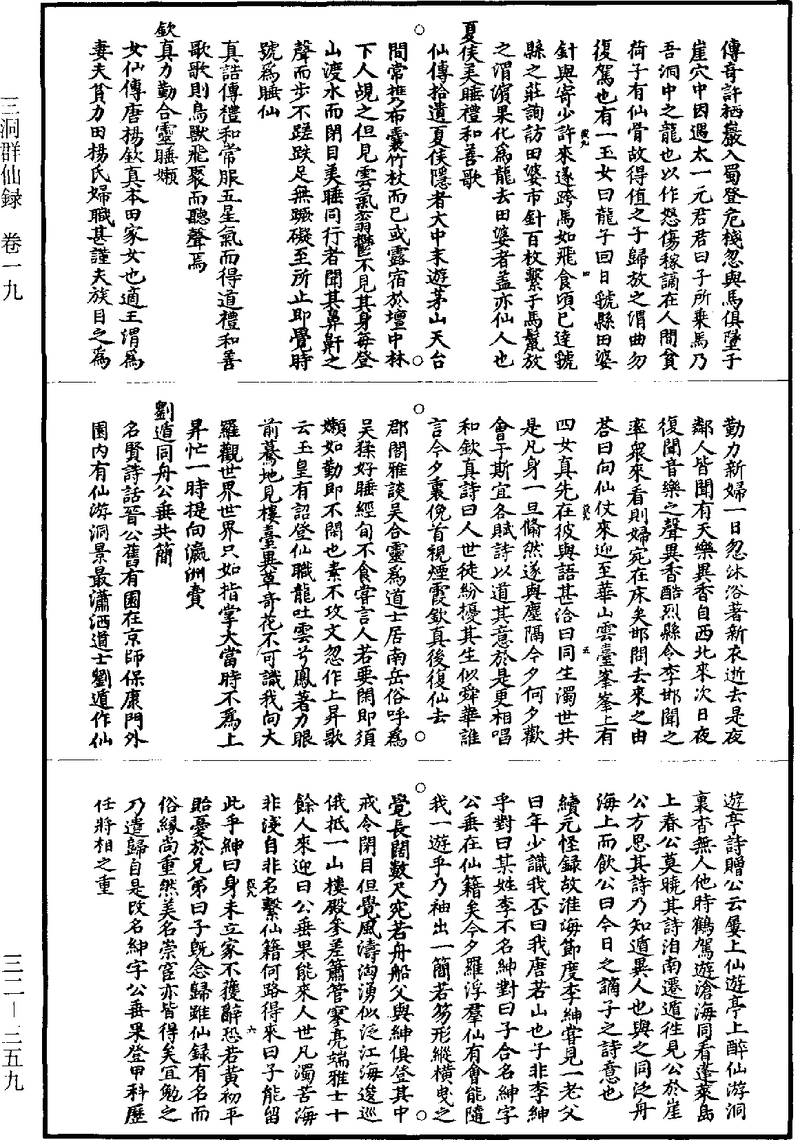 三洞群仙録　卷一九
三二—三五九
傳奇許栖巖入蜀登危棧忽與馬俱墜于
崖穴中因遇太一元君君曰子所乗馬乃
吾洞中之龍也以作怒傷稼謫在人間負
荷子有仙骨故得值之子歸放之渭曲勿
復駕也有一玉女曰龍子回日虢縣田婆
針與寄少許來遂跨馬如飛食頃已達虢
縣之莊詢訪田婆市針百枚繫于馬鬣放
之渭濱果化為龍去田婆者盖亦仙人也
夏侯美睡禮和善歌
仙傳拾遺夏侯隱者大中末遊茅山天台
間常携布囊竹杖而已或露宿於壇中林
下人覘之但見雲氣蓊鬱不見其身每登
山渡水而閉目美睡同行者聞其鼻鼾之
聲而步不蹉跌足無蹶礙至所止即覺時
號為睡仙
真誥傳禮和常服五星氣而得道禮和善
歌歌則鳥獸飛聚而聽聲焉
欽真力勤合靈睡嬾
女仙傳唐楊欽真本田家女也適王渭為
妻夫貧力田楊氏婦職甚謹夫族目之為
勤力新婦一日忽沐浴著新衣逝去是夜
鄰人皆聞有天樂異香自西北來次日夜
復聞音樂之聲異香酷烈縣令李邯聞之
率衆來看則婦宛在床矣邯問去來之由
荅曰向仙仗來迎至華山雲臺峯峯上有
四女真先在彼與語甚洽曰同生濁世共
是凡身一旦翛然遂與塵隔今夕何夕歡
會于斯宜各賦詩以道其意於是更相唱
和欽真詩曰人世徒紛擾其生似舜華誰
言今夕裏俛首視煙霞欽真後復仙去
郡閣雅談吳合靈為道士居南岳俗呼為
吳猱好睡經旬不食甞言人若要閑即須
嬾如勤即不閑也素不攻文忽作上昇歌
云玉皇有詔登仙職龍吐雲兮鳳著力眼
前驀地見樓臺異草奇花不可識我向大
羅觀世界世界只如指掌大當時不為上
昇忙一時提向瀛洲賣
劉遁同舟公垂共簡
名賢詩話晉公舊有園在京師保康門外
園内有仙游洞景最瀟洒道士劉遁作仙
遊亭詩贈公云屢上仙遊亭上醉仙游洞
裏杳無人他時鶴駕遊滄海同看蓬萊島
上春公莫曉其詩洎南遷遁徃見公於崖
公方思其詩乃知遁異人也與之同泛舟
海上而飲公曰今日之謫子之詩意也
續元怪録故淮海節度李紳甞見一老父
曰年少識我否曰我唐若山也子非李紳
乎對曰某姓李不名紳對曰子合名紳字
公垂在仙籍矣今夕羅浮羣仙有會能隨
我一遊乎乃袖出一簡若笏形縱横曳之
覺長闊數尺宛若舟船父與紳俱登其中
戒令閉目但覺風濤洶湧似泛江海逡巡
俄抵一山樓殿參差簫管寥亮端雅士十
餘人來迎曰公垂果能來人世凡濁苦海
非淺自非名繫仙籍何路得來曰子能留
此乎紳曰身未立家不獲辭恐若黄初平
貽憂於兄弟曰子旣念歸雖仙録有名而
俗緣尚重然美名崇宦亦皆得矣冝勉之
乃遣歸自是改名紳字公垂果登甲科歷
任將相之重